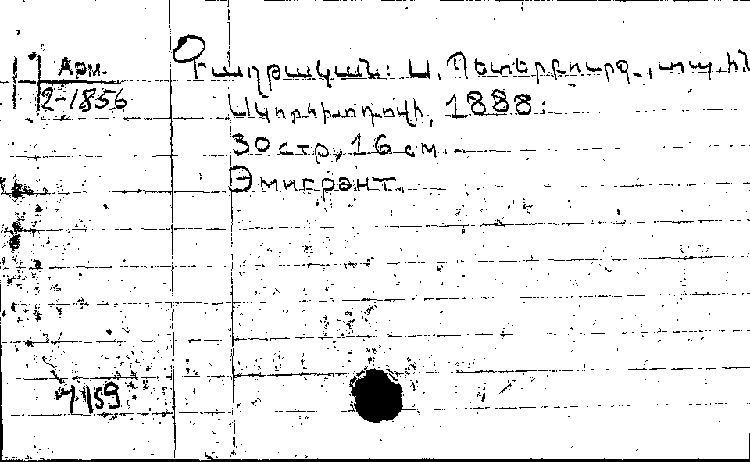 Арм.
2-1856
Գաղթական: Ս. Պետերբուրգ., տպ. ին
Սկորոխոդովի, 1888:
30 стр, 16 см.
Эмигрант.
7159